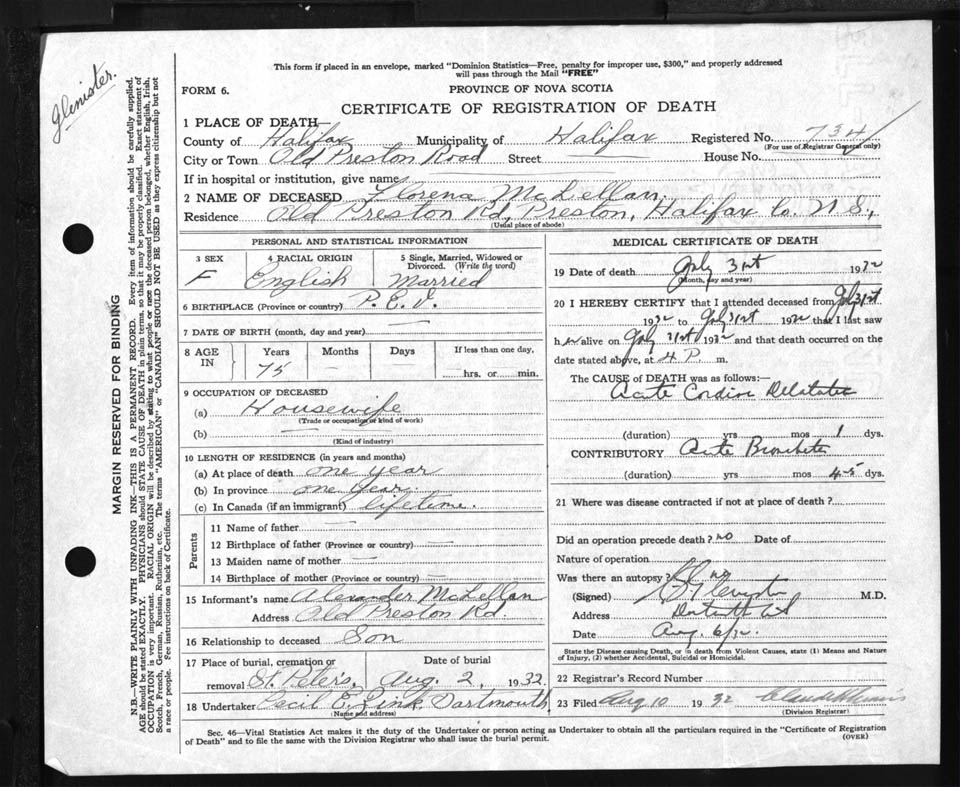 Glenister.
This form if placed in an envelope, marked "Dominion Statistics—Free, penalty for improper use, $300," and properly addressed
will pass through the Mail "FREE"
FORM 6.
PROVINCE OF NOVA SCOTIA
CERTIFICATE OF REGISTRATION OF DEATH
1 PLACE OF DEATH
County of Halifax Municipality of Halifax Registered No. 734
(For use of Registrar General only)
City or Town Old Preston Road Street House No.
If in hospital or institution, give name
2 NAME OF DECEASED Florena McLellan
Residence Old Preston Rd, Preston, Halifax Co. N.S.,
(Usual place of abode)
PERSONAL AND STATISTICAL INFORMATION
3 SEX 4 RACIAL ORIGIN 5 Single, Married, Widowed or
Divorced. (Write the word)
F English Married
6 BIRTHPLACE (Province or country) P.E.I.
7 DATE OF BIRTH (month, day and year) —
8 AGE IN Years Months Days If less than one day,
75 — hrs. or min.
9 OCCUPATION OF DECEASED
(a) Housewife
(Trade or occupation or kind of work)
(b) —
(Kind of industry)
10 LENGTH OF RESIDENCE (in years and months)
(a) At place of death one year
(b) In province one year.
(c) In Canada (if an immigrant) lifetime.
Parents
11 Name of father —
12 Birthplace of father (Province or country) —
13 Maiden name of mother —
14 Birthplace of mother (Province or country) —
15 Informant's name Alexander McLellan
Address Old Preston Rd
16 Relationship to deceased Son
17 Place of burial, cremation or Date of burial
removal St. Peters, Aug. 2, 1932.
18 Undertaker Cecil E. Zink Dartmouth
(Name and address)
MEDICAL CERTIFICATE OF DEATH
19 Date of death July 31st 1932
(Month, day and year)
20 I HEREBY CERTIFY that I attended deceased from July 31st
1932 to July 31st 1932 that I last saw
her alive on July 31st 1932 and that death occurred on the
date stated above, at 4 P. m.
The CAUSE of DEATH was as follows:—
Acute Cardiac
(duration) yrs mos 1 dys.
CONTRIBUTORY Acute Bronchitis
(duration) yrs mos 4-5 dys.
21 Where was disease contracted if not at place of death?
Did an operation precede death? no Date of
Nature of operation
Was there an autopsy? no
(Signed) Glenister M.D.
Address
Date Aug. 6/32.
State the Disease causing Death, or in death from Violent Causes, state (1) Means and Nature
of Injury, (2) whether Accidental, Suicidal or Homicidal.
22 Registrar's Record Number
23 Filed Aug 10 1932
(Division Registrar)
Sec. 46—Vital Statistics Act makes it the duty of the Undertaker or person acting as Undertaker to obtain all the particulars required in the "Certificate of Registration
of Death" and to file the same with the Division Registrar who shall issue the burial permit.
(OVER)
MARGIN RESERVED FOR BINDING
N.B.—WRITE PLAINLY WITH UNFADING INK—THIS IS A PERMANENT RECORD. Every item of information should be carefully supplied.
AGE should be stated EXACTLY. PHYSICIANS should STATE CAUSE OF DEATH in plain terms, so that it may be properly classified. Exact statement of
OCCUPATION is very important. RACIAL ORIGIN will be described by stating to what people or race the deceased person belonged, whether English, Irish,
Scotch, French, German, Russian, Ruthenian, etc. The terms "AMERICAN" or "CANADIAN" SHOULD NOT BE USED as they express citizenship but not
a race or people. See instructions on back of Certificate.